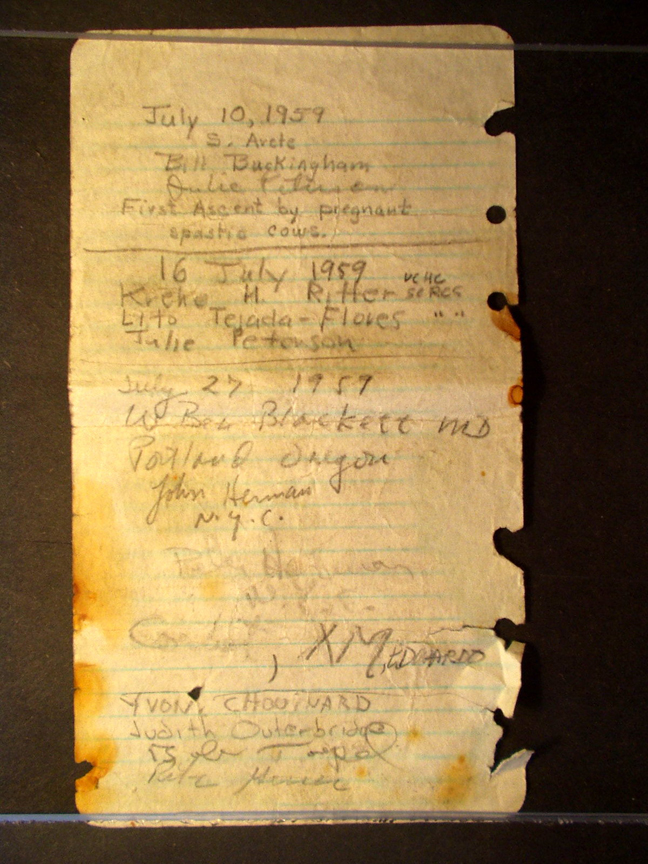 July 10, 1959
S. Arete
Bill Buckingham
Julie Peterson
First Ascent by pregnant
spastic cows.
16 July 1959
Krehe H. Ritter
Lito Tejada-Flores " "
Julie Peterson
July 27 1959
W Ben Blackett MD
Portland Oregon
John Herman
N.Y.C.
N.Y.C.
, EDGARDO
YVON CHOUINARD
Judith Outerbridge